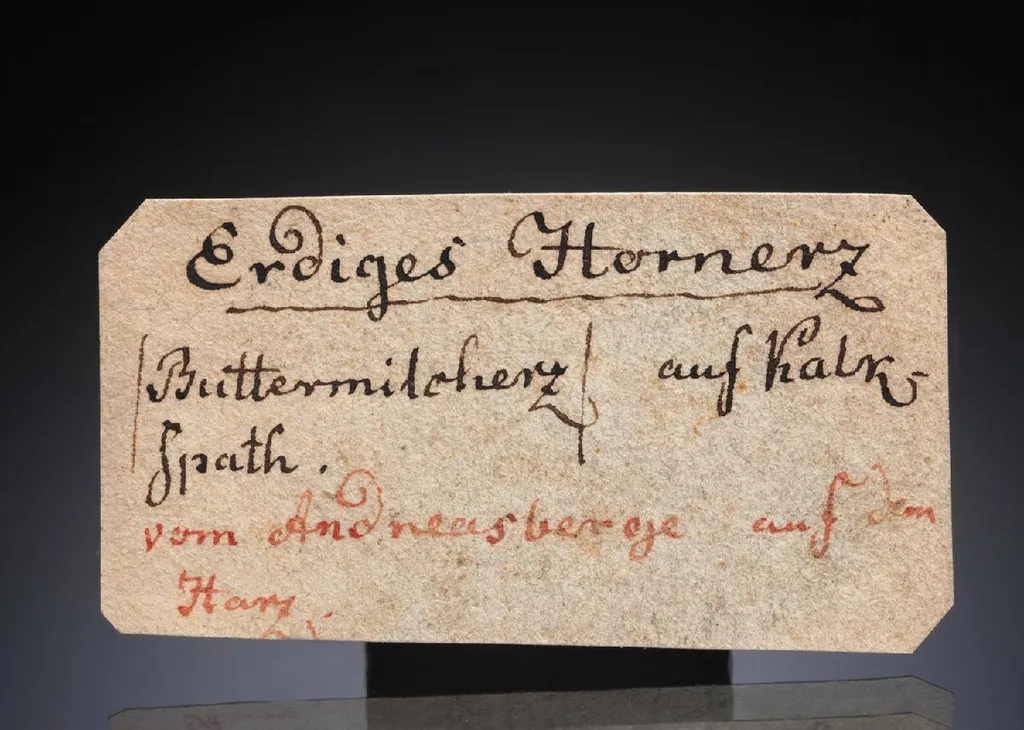 Erdiges Hornerz
|Buttermilcherz| auf Kalk-
spath.
vom Andreasberge auf dem
Harz.